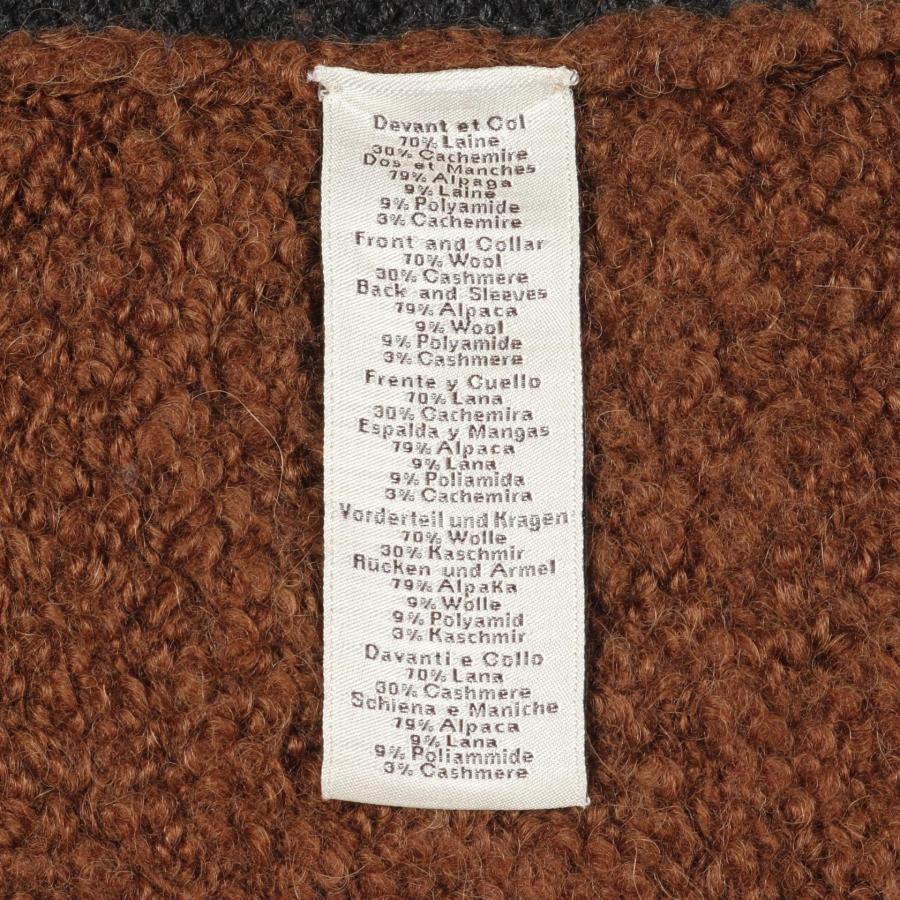 Devant et Col
70% Laine
30% Cachemire
Dos et Manches
79% Alpaga
9% Laine
9% Polyamide
3% Cachemire
Front and Collar
70% Wool
30% Cashmere
Back and Sleeves
79% Alpaca
9% Wool
9% Polyamide
3% Cashmere
Frente y Cuello
70% Lana
30% Cachemira
Espalda y Mangas
79% Alpaca
9% Lana
9% Poliamida
3% Cachemira
Vorderteil und Kragen
70% Wolle
30% Kaschmir
Rücken und Armel
79% Alpaka
9% Wolle
9% Polyamid
3% Kaschmir
Davanti e Collo
70% Lana
30% Cashmere
Schiena e Maniche
79% Alpaca
9% Lana
9% Poliammide
3% Cashmere